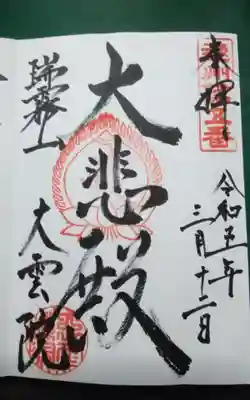 奉拝
令和五年
三月十二日
大悲殿
瑞雲山
大雲院